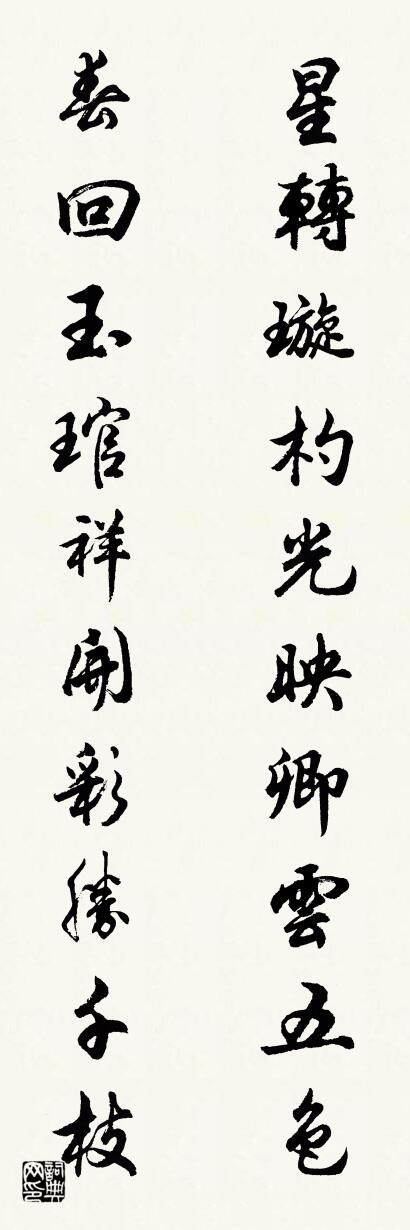 星轉璇杓光映卿雲五色
春回玉琯祥開彩勝千枝
詞典网印